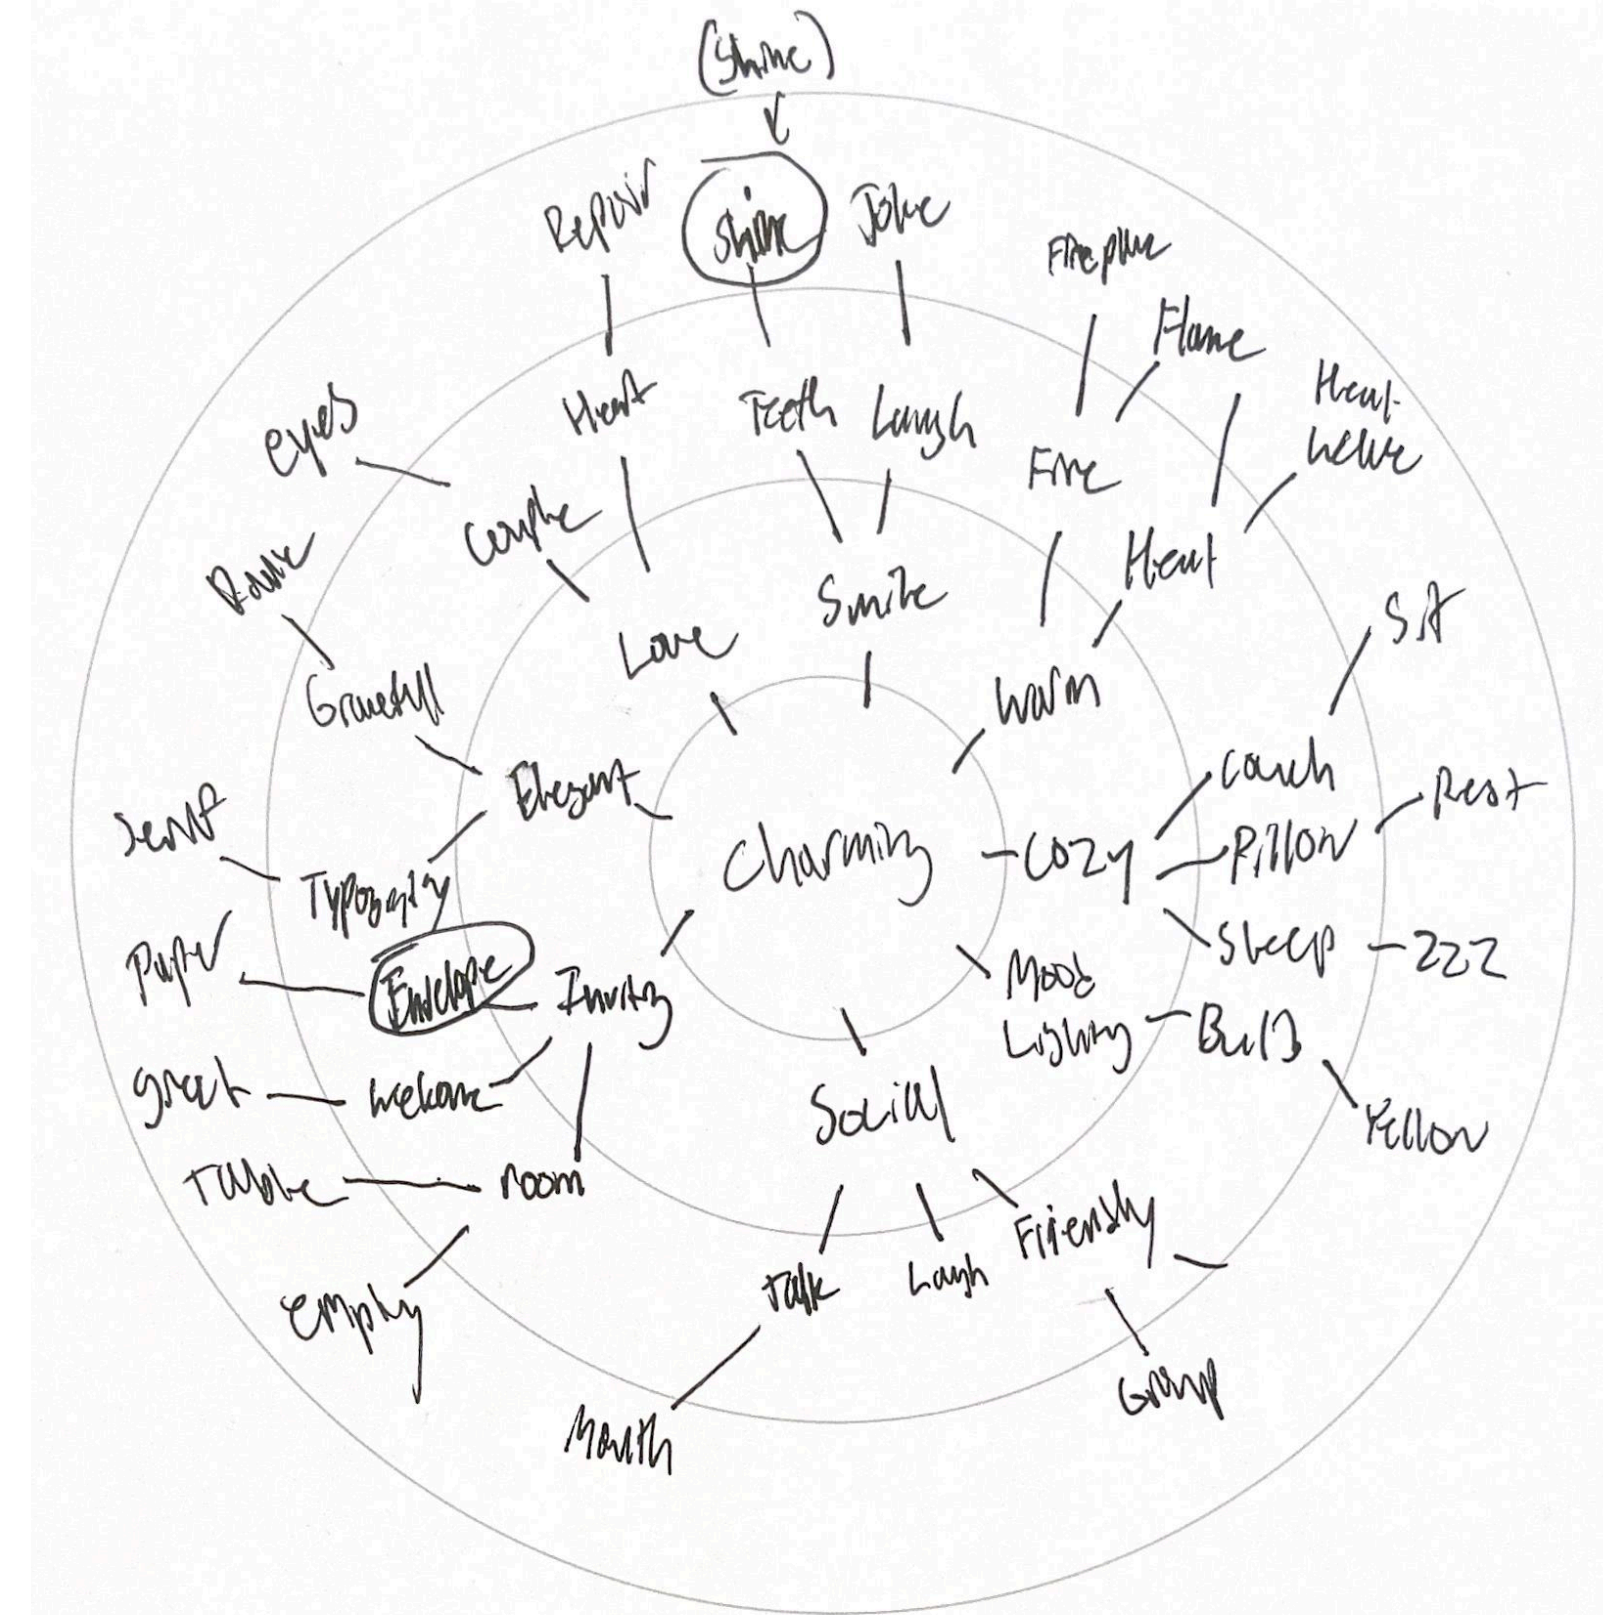 (Shine)
Repair
Shine
Joke
Fireplace
Flame
Heat
wave
Heart
Teeth
Laugh
Fire
Heat
eyes
Couple
Love
Smile
Warm
Sit
Dance
Gracefull
Elegant
Couch
Rest
Serif
Typography
Charming
Cozy
Pillow
Sleep
ZZZ
Paper
Envelope
Inviting
Mood
Lighting
Bulb
Yellow
greet
welcome
Social
Table
room
Friendly
empty
Talk
Laugh
Group
Mouth